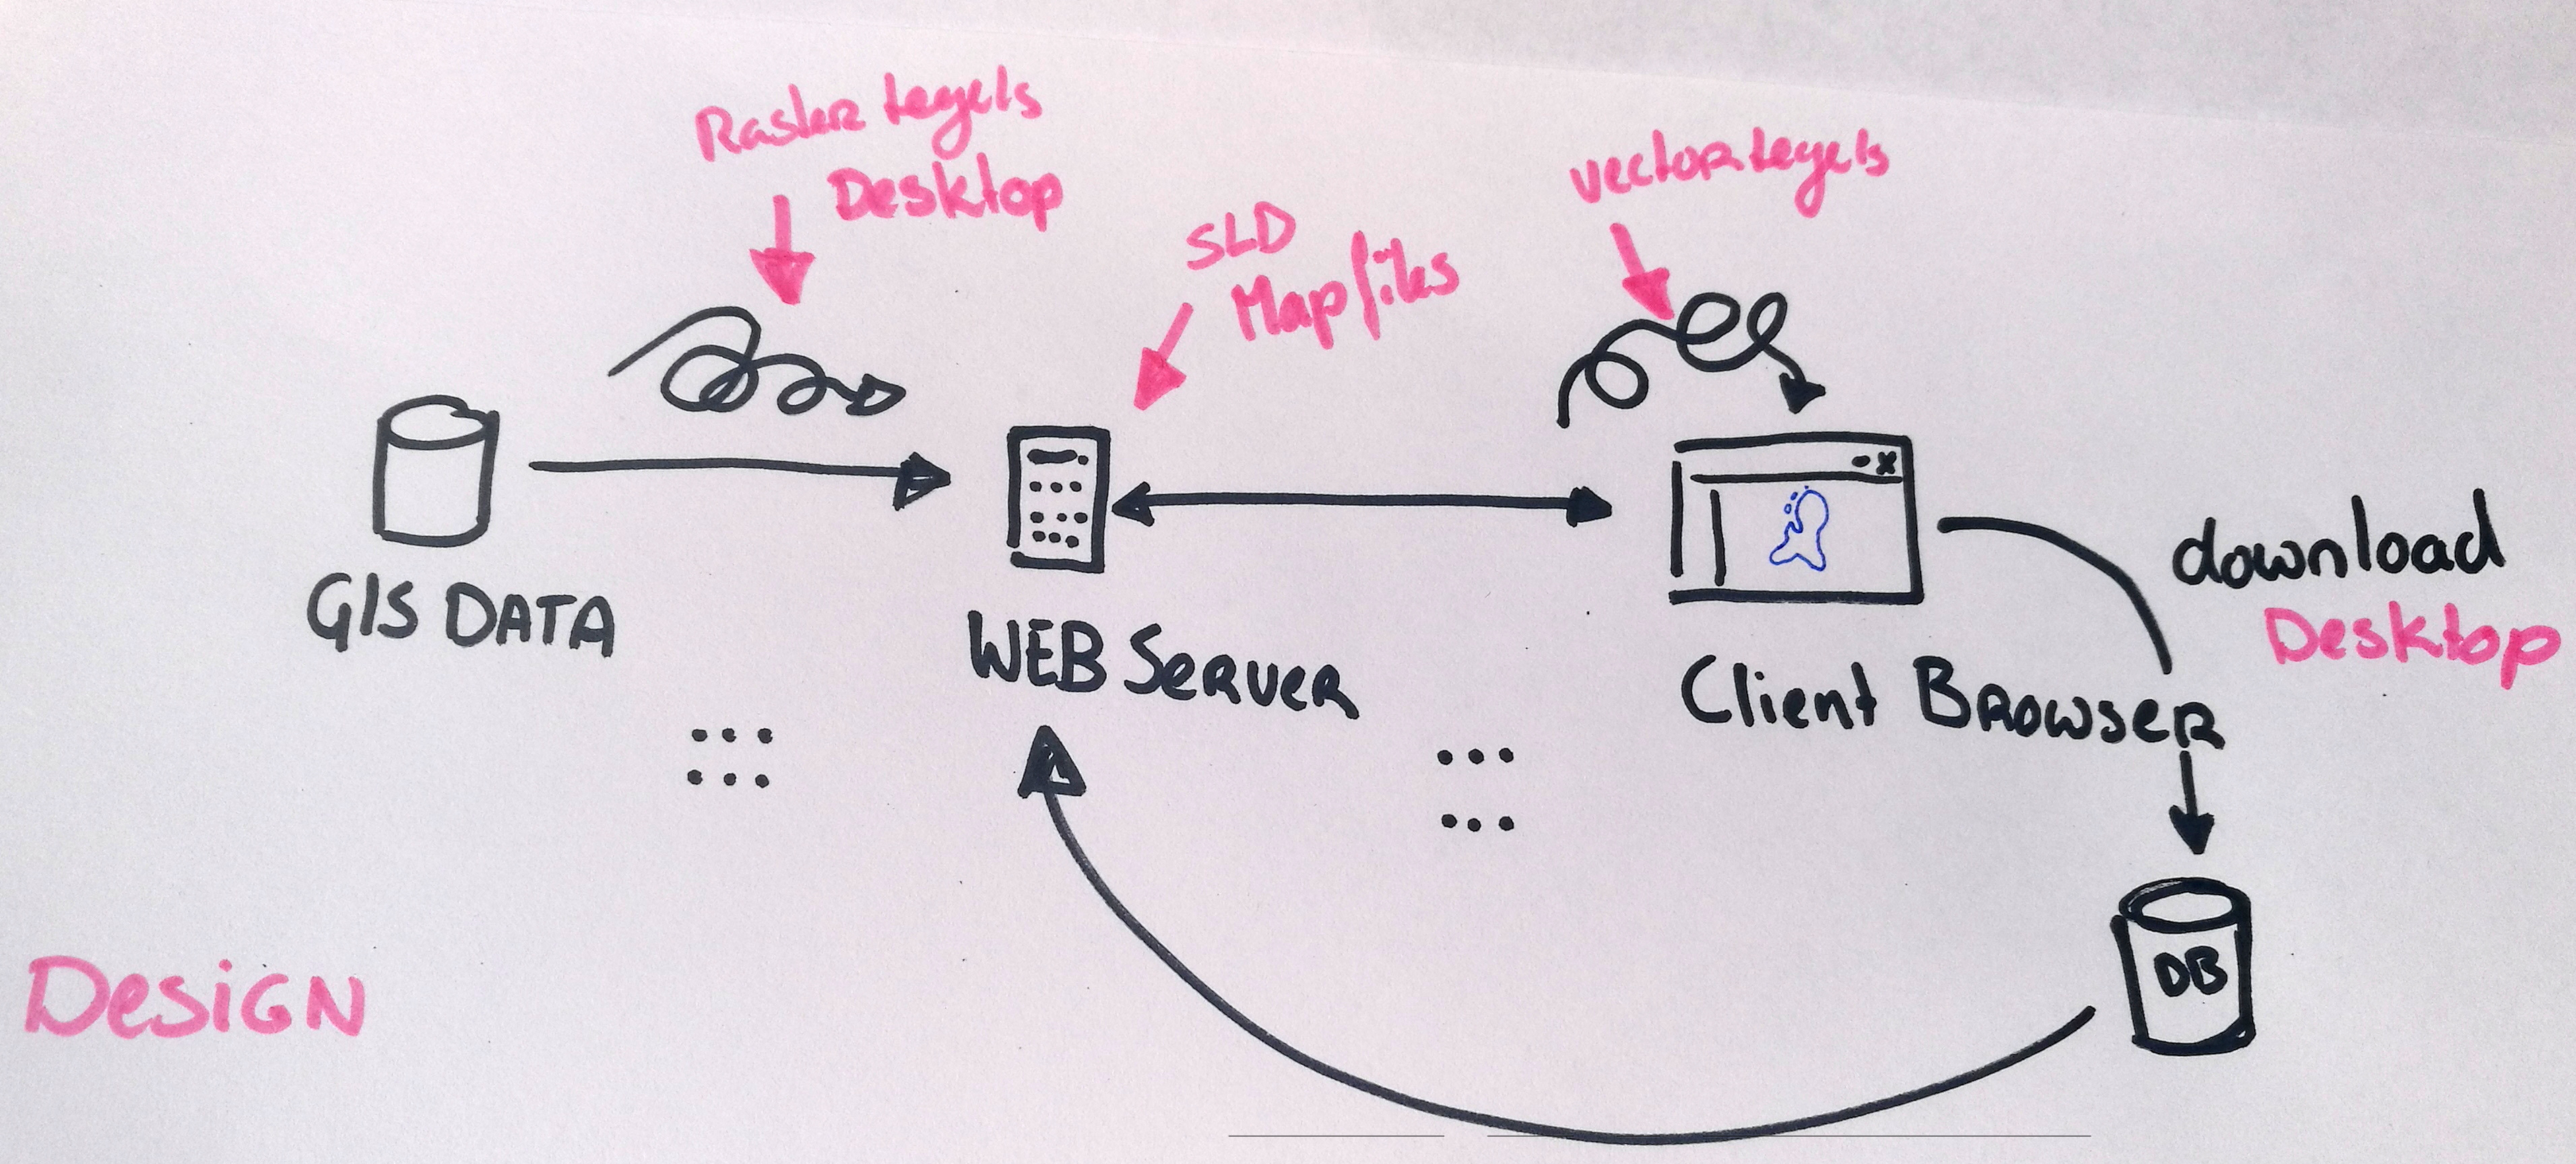 Raster tegels
Desktop
SLD
Mapfiles
vectortegels
GIS DATA
WEB SERVER
Client BROWSER
download
Desktop
DB
DESIGN